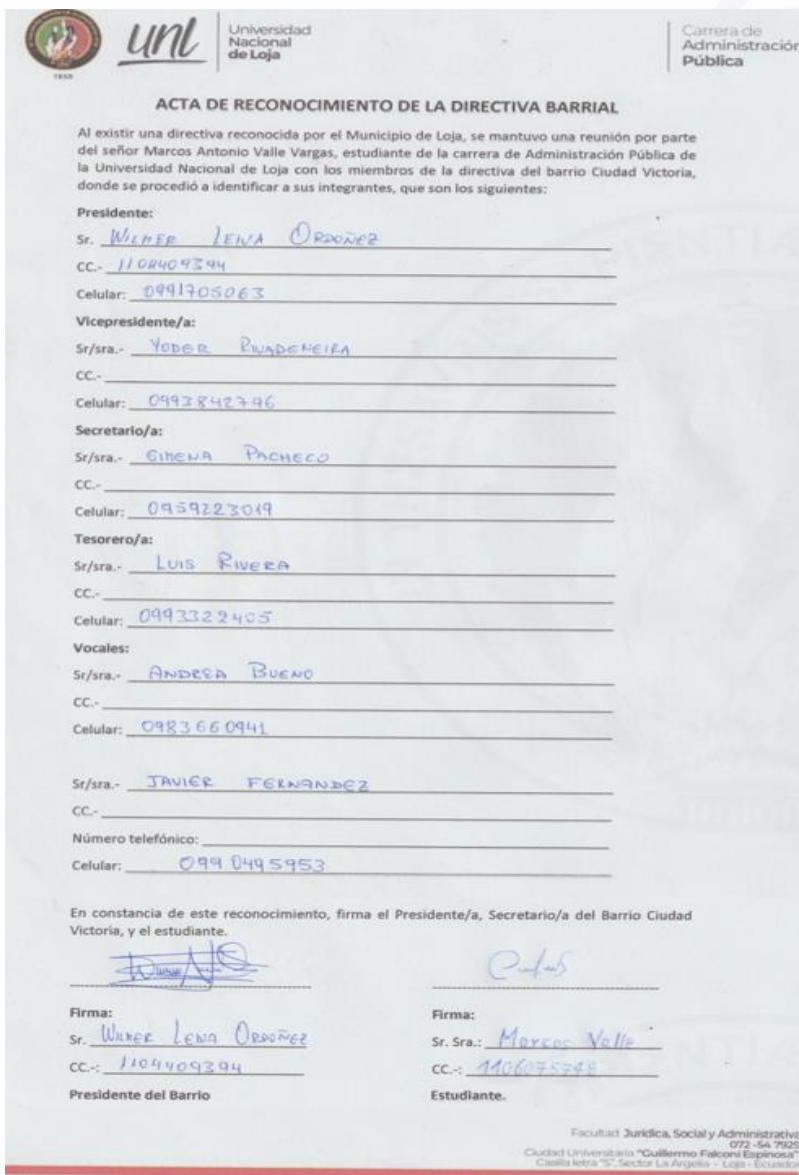 1859
unl
Universidad
Nacional
de Loja
Carrera de
Administración
Pública
ACTA DE RECONOCIMIENTO DE LA DIRECTIVA BARRIAL
Al existir una directiva reconocida por el Municipio de Loja, se mantuvo una reunión por parte
del señor Marcos Antonio Valle Vargas, estudiante de la carrera de Administración Pública de
la Universidad Nacional de Loja con los miembros de la directiva del barrio Ciudad Victoria,
donde se procedió a identificar a sus integrantes, que son los siguientes:
Presidente:
Sr. WILMER LEIVA ORDOÑEZ
CC.- 1104409394
Celular: 0991705063
Vicepresidente/a:
Sr/sra.- YODER RIVADENEIRA
CC.-
Celular: 0993842796
Secretario/a:
Sr/sra.- GIMENA PACHECO
CC.-
Celular: 0959223019
Tesorero/a:
Sr/sra.- LUIS RIVERA
CC.-
Celular: 0993322405
Vocales:
Sr/sra.- ANDREA BUENO
CC.-
Celular: 0983660941
Sr/sra.- JAVIER FERNANDEZ
CC.-
Número telefónico:
Celular: 0990495953
En constancia de este reconocimiento, firma el Presidente/a, Secretario/a del Barrio Ciudad
Victoria, y el estudiante.
Firma:
Sr. WILMER LEIVA ORDOÑEZ
CC.-: 1104409394
Presidente del Barrio
Firma:
Sr. Sra.: Marcos Valle
CC.-: 1106075748
Estudiante.
Facultad Jurídica, Social y Administrativa
072 -54 7929
Ciudad Universitaria "Guillermo Falconí Espinosa"
Casilla letra "S", Sector La Argelia - Loja - Ecuador